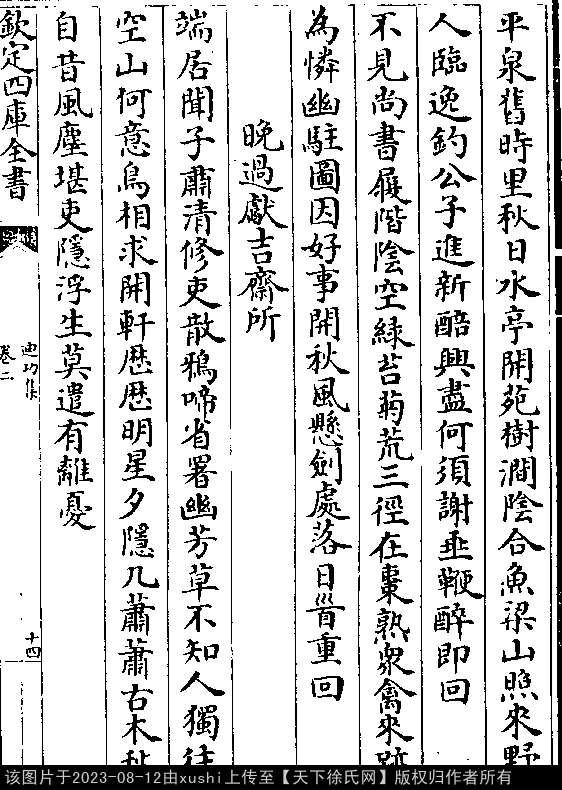 平泉舊時里秋日水亭開苑樹澗陰合魚梁山照來野
人臨逸釣公子進新醅興盡何須謝垂鞭醉即回
不見尚書屐階陰空綠苔菊荒三徑在棗熟衆禽來跡
為憐幽駐圖因好事開秋風懸劍處落日首重回
晚過獻吉齋所
端居聞子肅清修吏散鴉啼省署幽芳草不知人獨往
空山何意鳥相求開軒歴歴明星夕隱几蕭蕭古木秋
自昔風塵堪吏隱浮生莫遣有離憂
欽定四庫全書
迪功集
卷二
十四
该图片于2023-08-12由xushi上传至【天下徐氏网】版权归作者所有